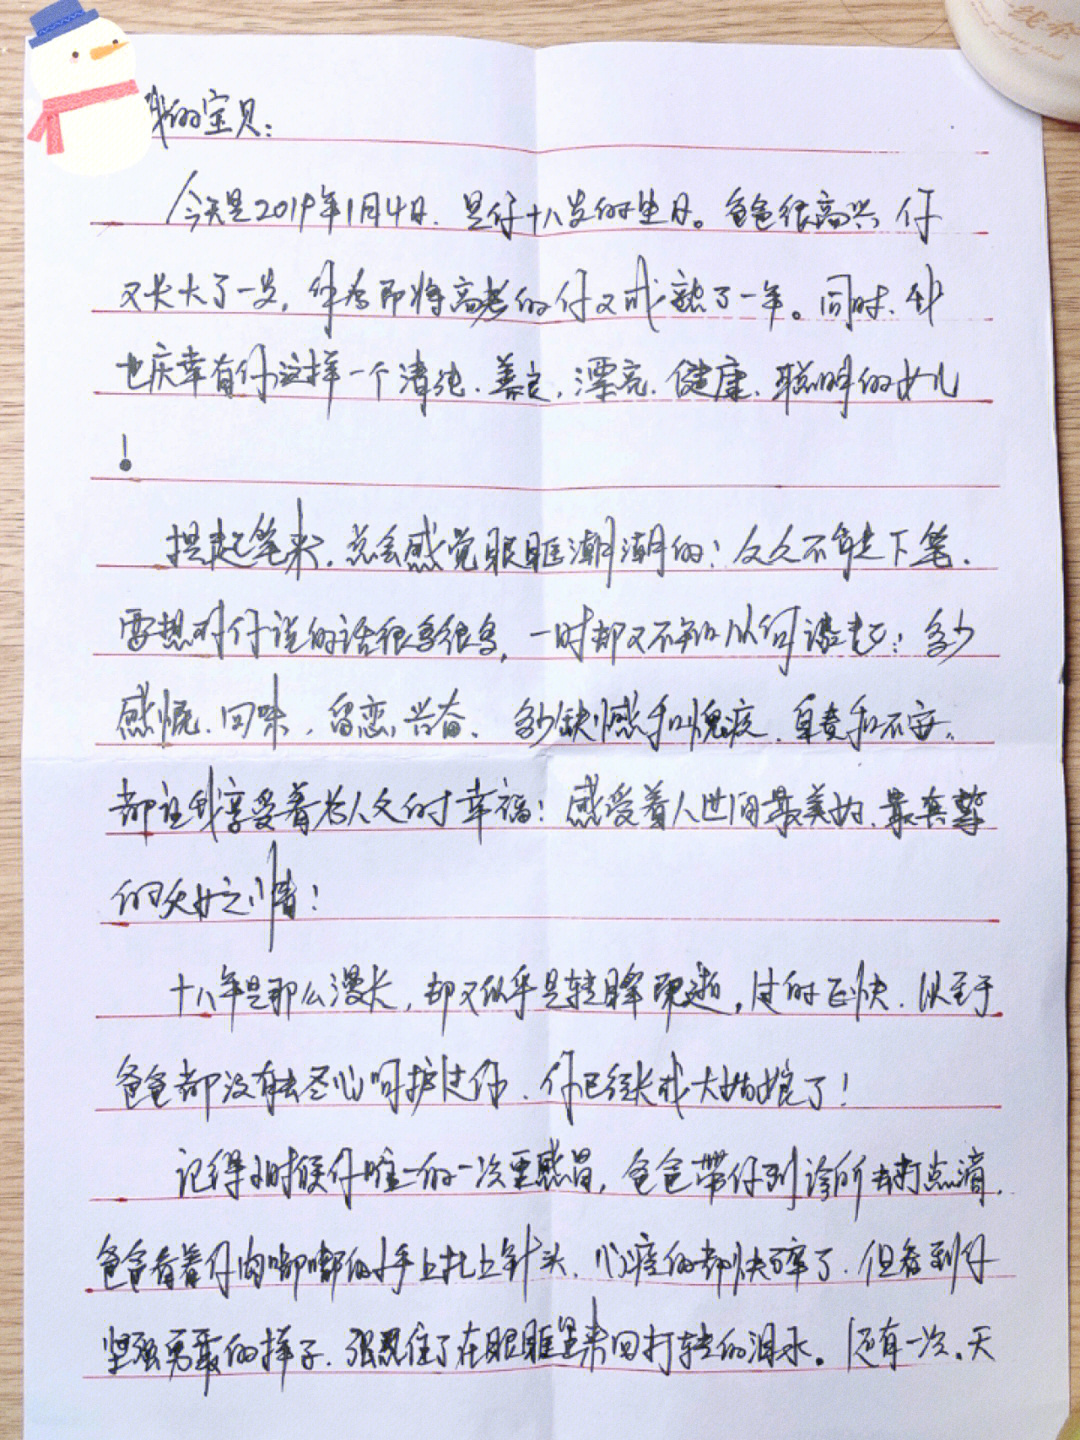 我的宝贝：
今天是2019年1月4日，是仔十八岁的生日。爸爸很高兴仔
又长大了一岁，伴着即将高考的仔又成熟了一年。同时，我
也庆幸有仔这样一个清纯、善良、漂亮、健康、聪明的女儿
！
提起笔来，总会感觉眼眶潮潮的；久久不能下笔，
要想对仔说的话很多很多，一时却又不知从何谈起；多少
感慨、回味、留恋、兴奋、多少缺憾和愧疚、自责和不安，
都让我享受着为人父的幸福；感受着人世间最美的、最真挚
的父女之情！
十八年是那么漫长，却又似乎是转眸即逝，过的飞快，以至于
爸爸都没有去尽心呵护过你，仔已经长成大姑娘了！
记得小时候仔唯一的一次重感冒，爸爸带仔到诊所去打点滴，
爸爸看着仔肉嘟嘟的小手上扎上针头，心疼的都快碎了，但看到仔
坚强勇敢的样子，强忍住了在眼眶里来回打转的泪水。还有一次，天